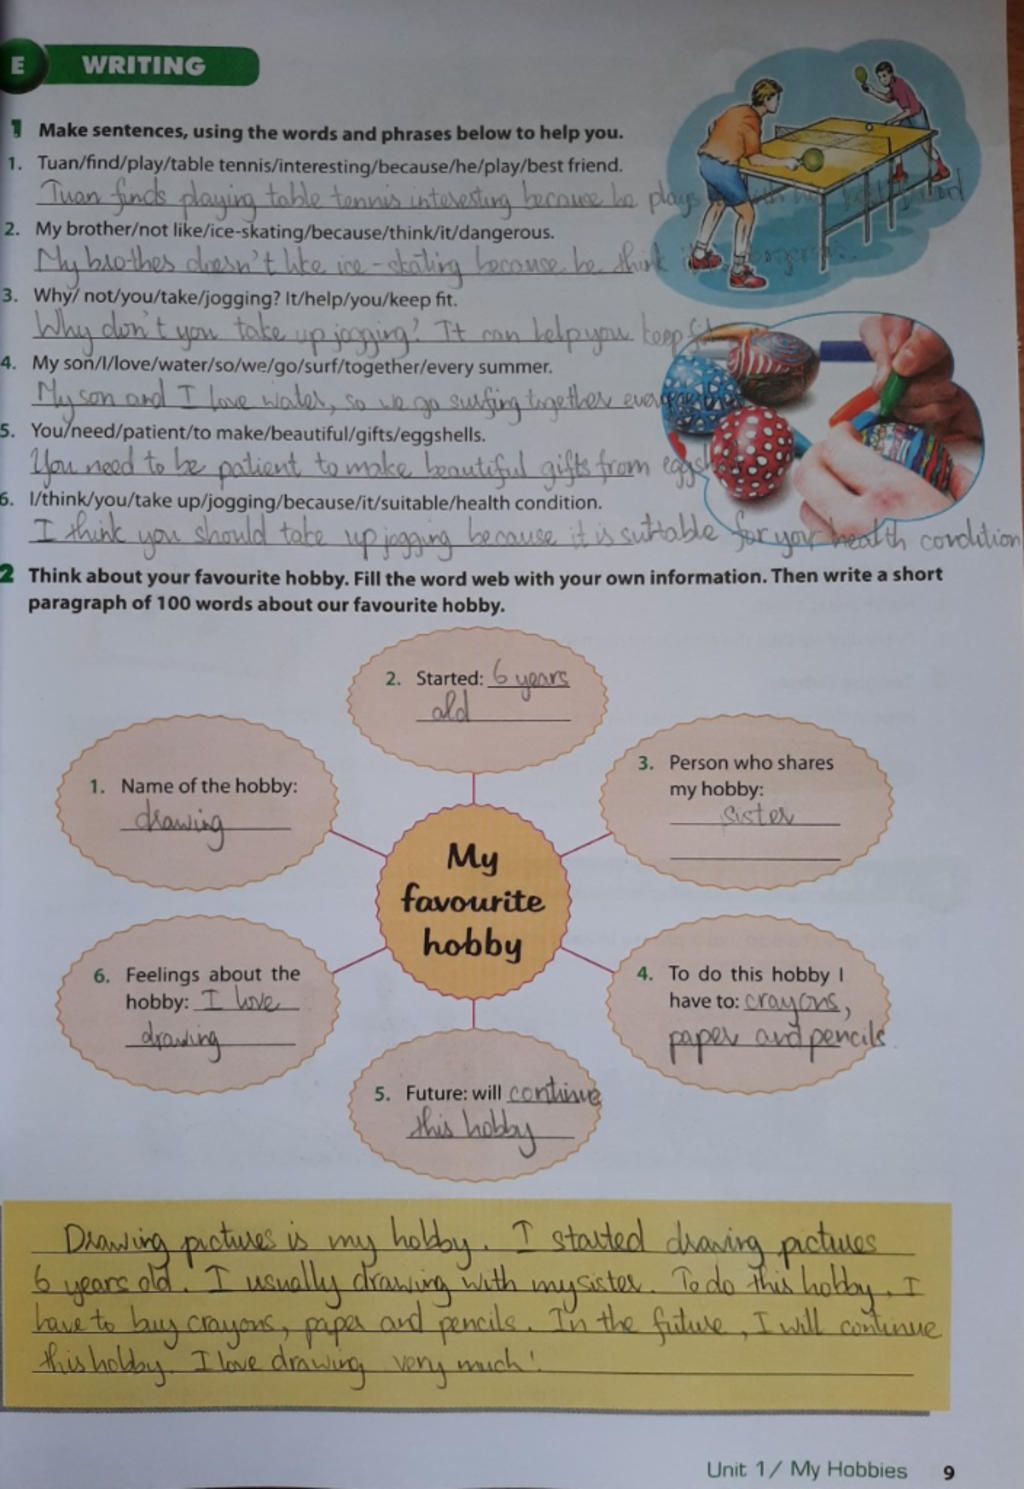 E WRITING
1 Make sentences, using the words and phrases below to help you.
1. Tuan/find/play/table tennis/interesting/because/he/play/best friend.
Tuan finds playing table tennis interesting because he plays with his best friend
2. My brother/not like/ice-skating/because/think/it/dangerous.
My brother doesn't like ice-skating because he think
3. Why/ not/you/take/jogging? It/help/you/keep fit.
Why don't you take up jogging? It can help you keep fit
4. My son/I/love/water/so/we/go/surf/together/every summer.
My son and I love water, so we go surfing together every
5. You/need/patient/to make/beautiful/gifts/eggshells.
You need to be patient to make beautiful gifts from
6. I/think/you/take up/jogging/because/it/suitable/health condition.
I think you should take up jogging because it is suitable for your health condition
2 Think about your favourite hobby. Fill the word web with your own information. Then write a short
paragraph of 100 words about our favourite hobby.
2. Started: 6 years
old
1. Name of the hobby:
drawing
3. Person who shares
my hobby:
sister
My
favourite
hobby
6. Feelings about the
hobby: I love
drawing
4. To do this hobby I
have to: crayons,
paper and pencils
5. Future: will continue
this hobby
Drawing pictures is my hobby. I started drawing pictures
6 years old. I usually drawing with my sister. To do this hobby, I
have to buy crayons, paper and pencils. In the future, I will continue
this hobby. I love drawing very much!
Unit 1/ My Hobbies 9